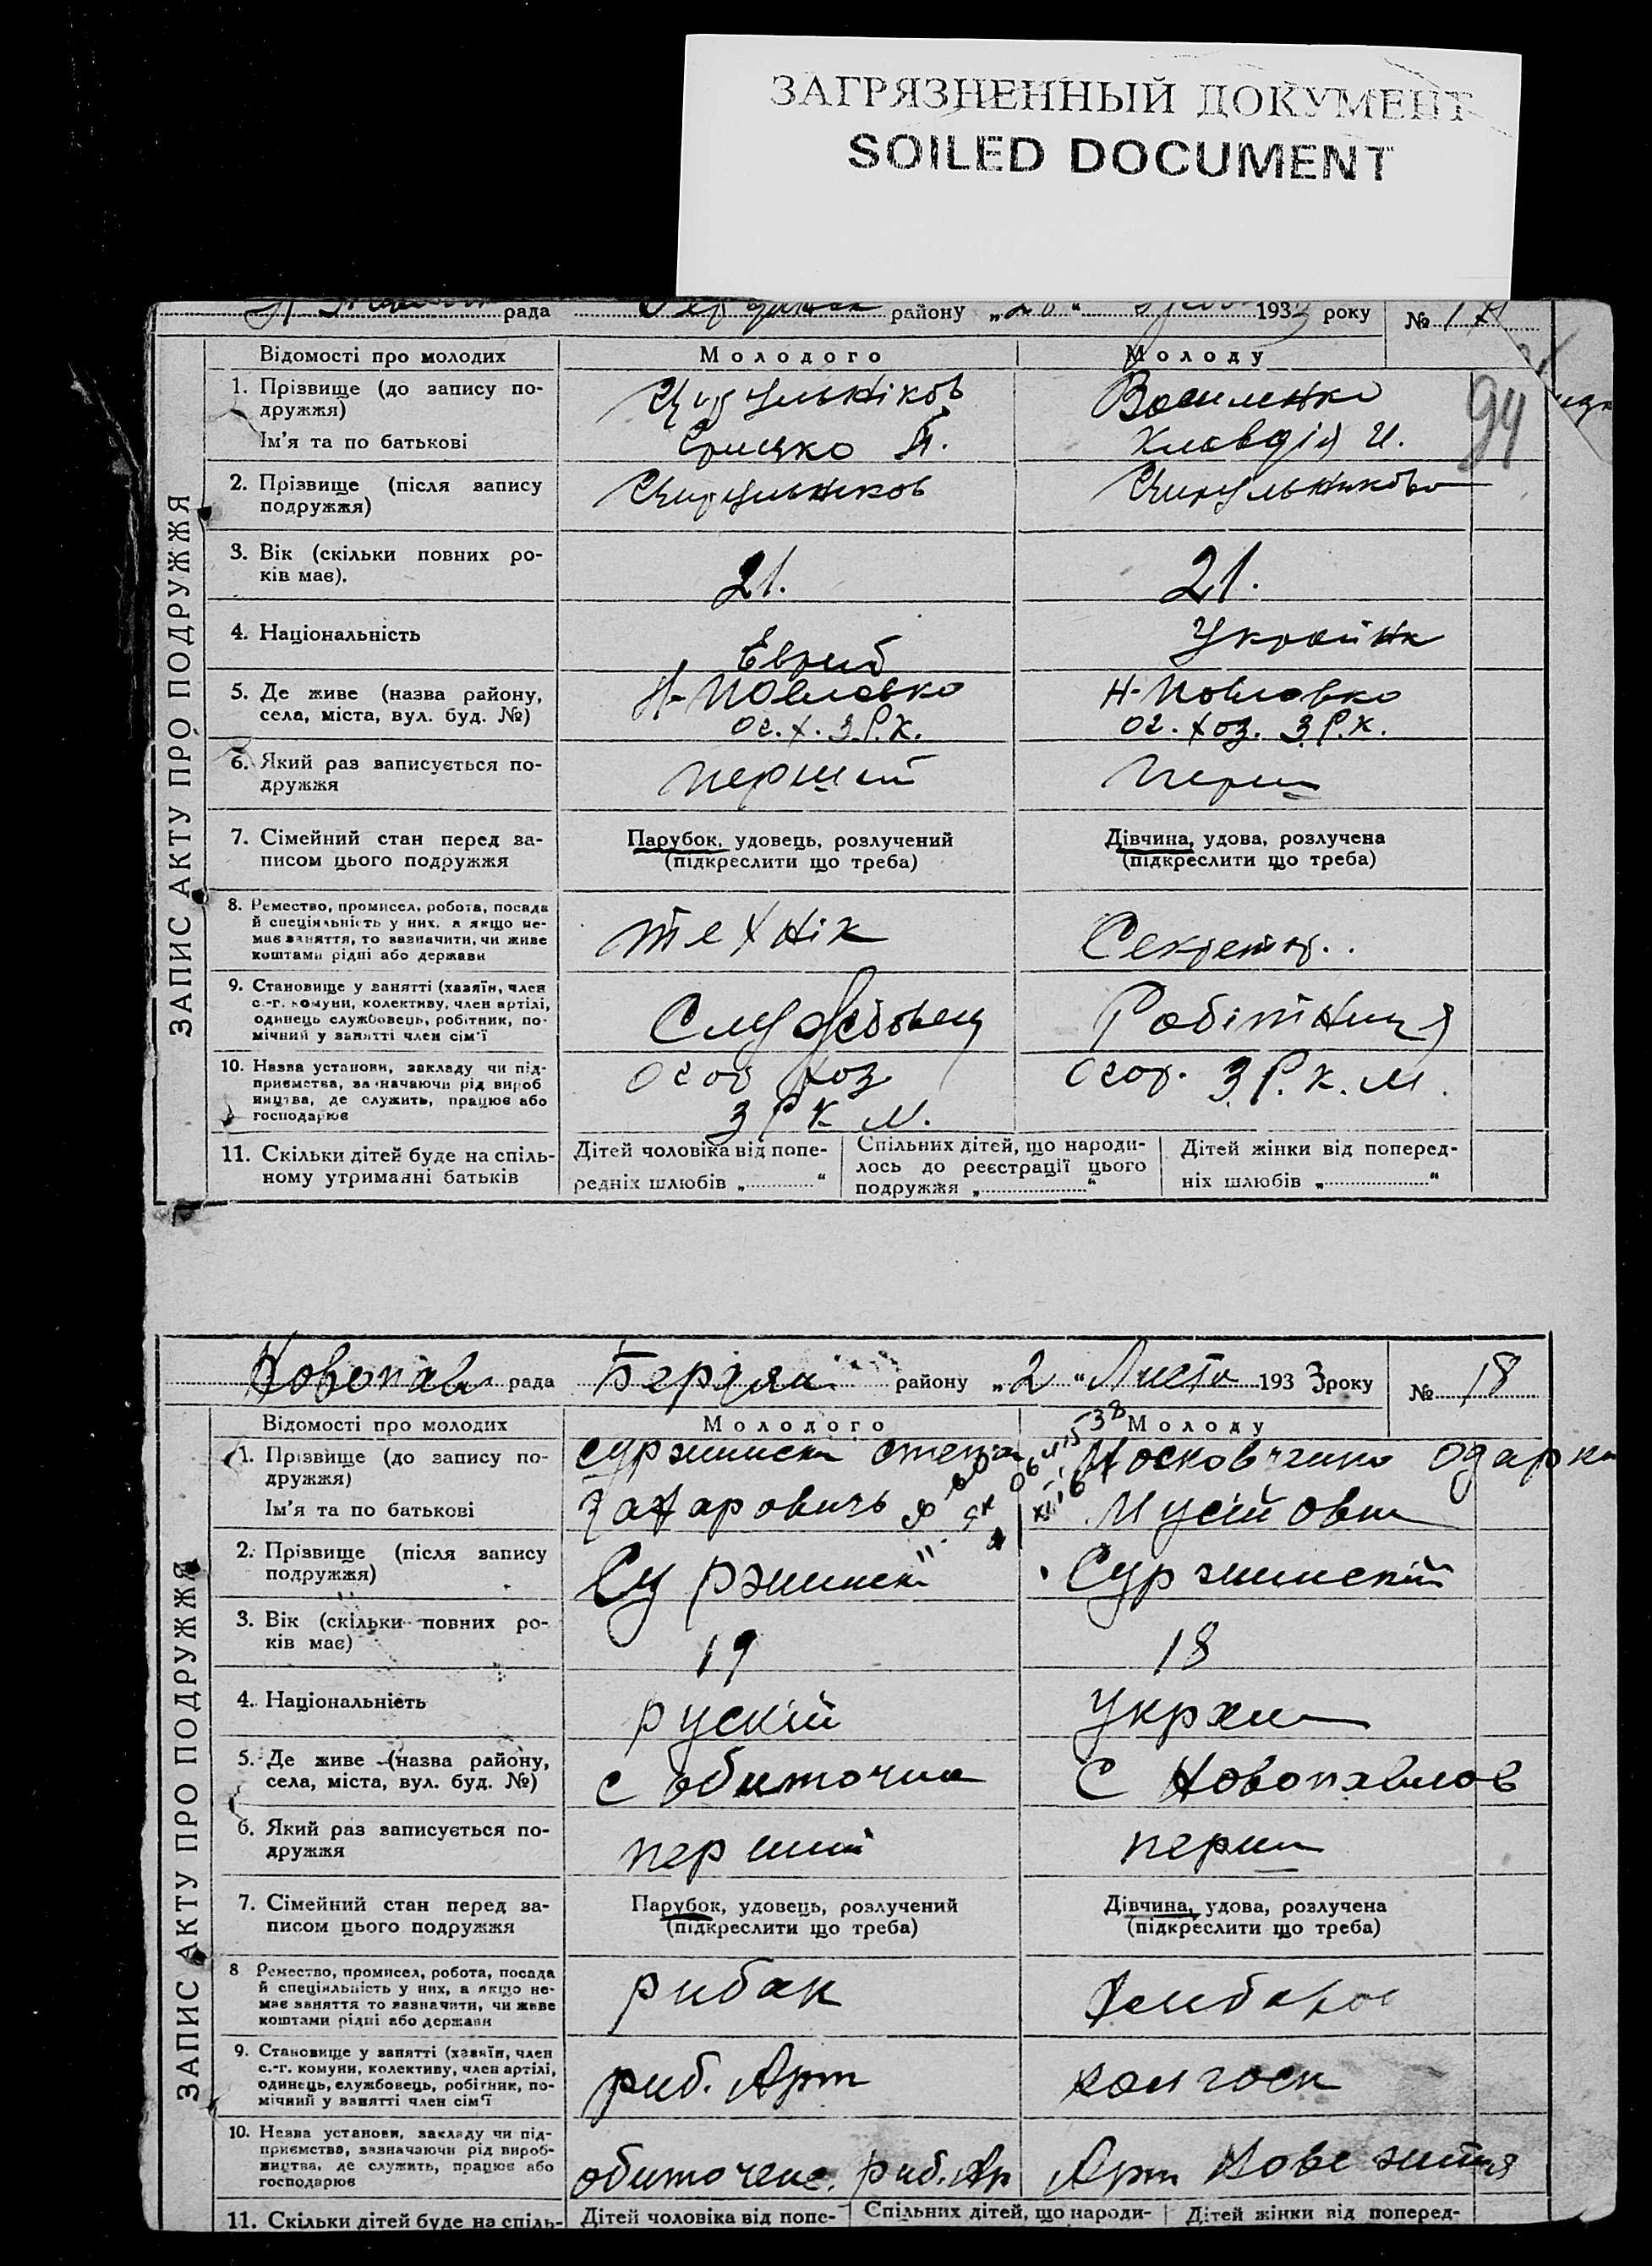 ЗАГРЯЗНЕННЫЙ ДОКУМЕНТ
SOILED DOCUMENT
рада району „20“ 193 року №
94
ЗАПИС АКТУ ПРО ПОДРУЖЖЯ
Відомості про молодих Молодого Молоду
1. Прізвище (до запису по-
дружжя)
Василенко
Ім'я та по батькові Грицко П. Клавдія И.
2. Прізвище (після запису
подружжя)
Цирульников Цирульникова
3. Вік (скільки повних ро-
ків має).
21. 21.
4. Національність
Еврей Україн
5. Де живе (назва району,
села, міста, вул. буд. №)
Н-Повловко Н-Повловко
ог. х. З.Р.К. ог. хоз. З.Р.К.
6. Який раз записується по-
дружжя
перший перш
7. Сімейний стан перед за-
писом цього подружжя
Парубок, удовець, розлучений
(підкреслити що треба)
Дівчина, удова, розлучена
(підкреслити що треба)
8. Ремество, промисел, робота, посада
й спеціяльність у них, а якщо не-
має заняття, то зазначити, чи живе
коштами рідні або держави
технік Секретар.
9. Становище у занятті (хазяїн, член
с.-г. комуни, колективу, член артілі,
одинець службовець, робітник, по-
мічний у занятті член сім'ї
Службовець Робітниця
10. Назва установи, закладу чи під-
приємства, зазначаючи рід вироб
ництва, де служить, працює або
господарює
огор хоз
З Р К М.
огор. З.Р.К.М.
11. Скільки дітей буде на спіль-
ному утриманні батьків
Дітей чоловіка від попе-
редніх шлюбів „ “
Спільних дітей, що народи-
лось до реєстрації цього
подружжя „ “
Дітей жінки від поперед-
ніх шлюбів „ “
Новопавл рада Бердян району „2“ Листо 1933 року № 18
ЗАПИС АКТУ ПРО ПОДРУЖЖЯ
Відомості про молодих Молодого Молоду
1. Прізвище (до запису по-
дружжя)
Степан Одарка
Ім'я та по батькові Захарович Мусійовн
2. Прізвище (після запису
подружжя)
3. Вік (скільки повних ро-
ків має)
19 18
4. Національність
рускій
5. Де живе (назва району,
села, міста, вул. буд. №)
с обиточна с Новопавлов
6. Який раз записується по-
дружжя
перший перш
7. Сімейний стан перед за-
писом цього подружжя
Парубок, удовець, розлучений
(підкреслити що треба)
Дівчина, удова, розлучена
(підкреслити що треба)
8 Ремество, промисел, робота, посада
й спеціяльність у них, а якщо не-
має заняття то зазначити, чи живе
коштами рідні або держави
рибак
9. Становище у занятті (хазяїн, член
с.-г. комуни, колективу, член артілі,
одинець, службовець, робітник, по-
мічний у занятті член сім'ї
риб. Арт колгосп
10. Назва установи, закладу чи під-
приємства, зазначаючи рід вироб-
ництва, де служить, працює або
господарює
обиточенс. риб. Ар Арт Нове життя
11. Скільки дітей буде на спіль- Дітей чоловіка від попе- Спільних дітей, що народи- Дітей жінки від поперед-